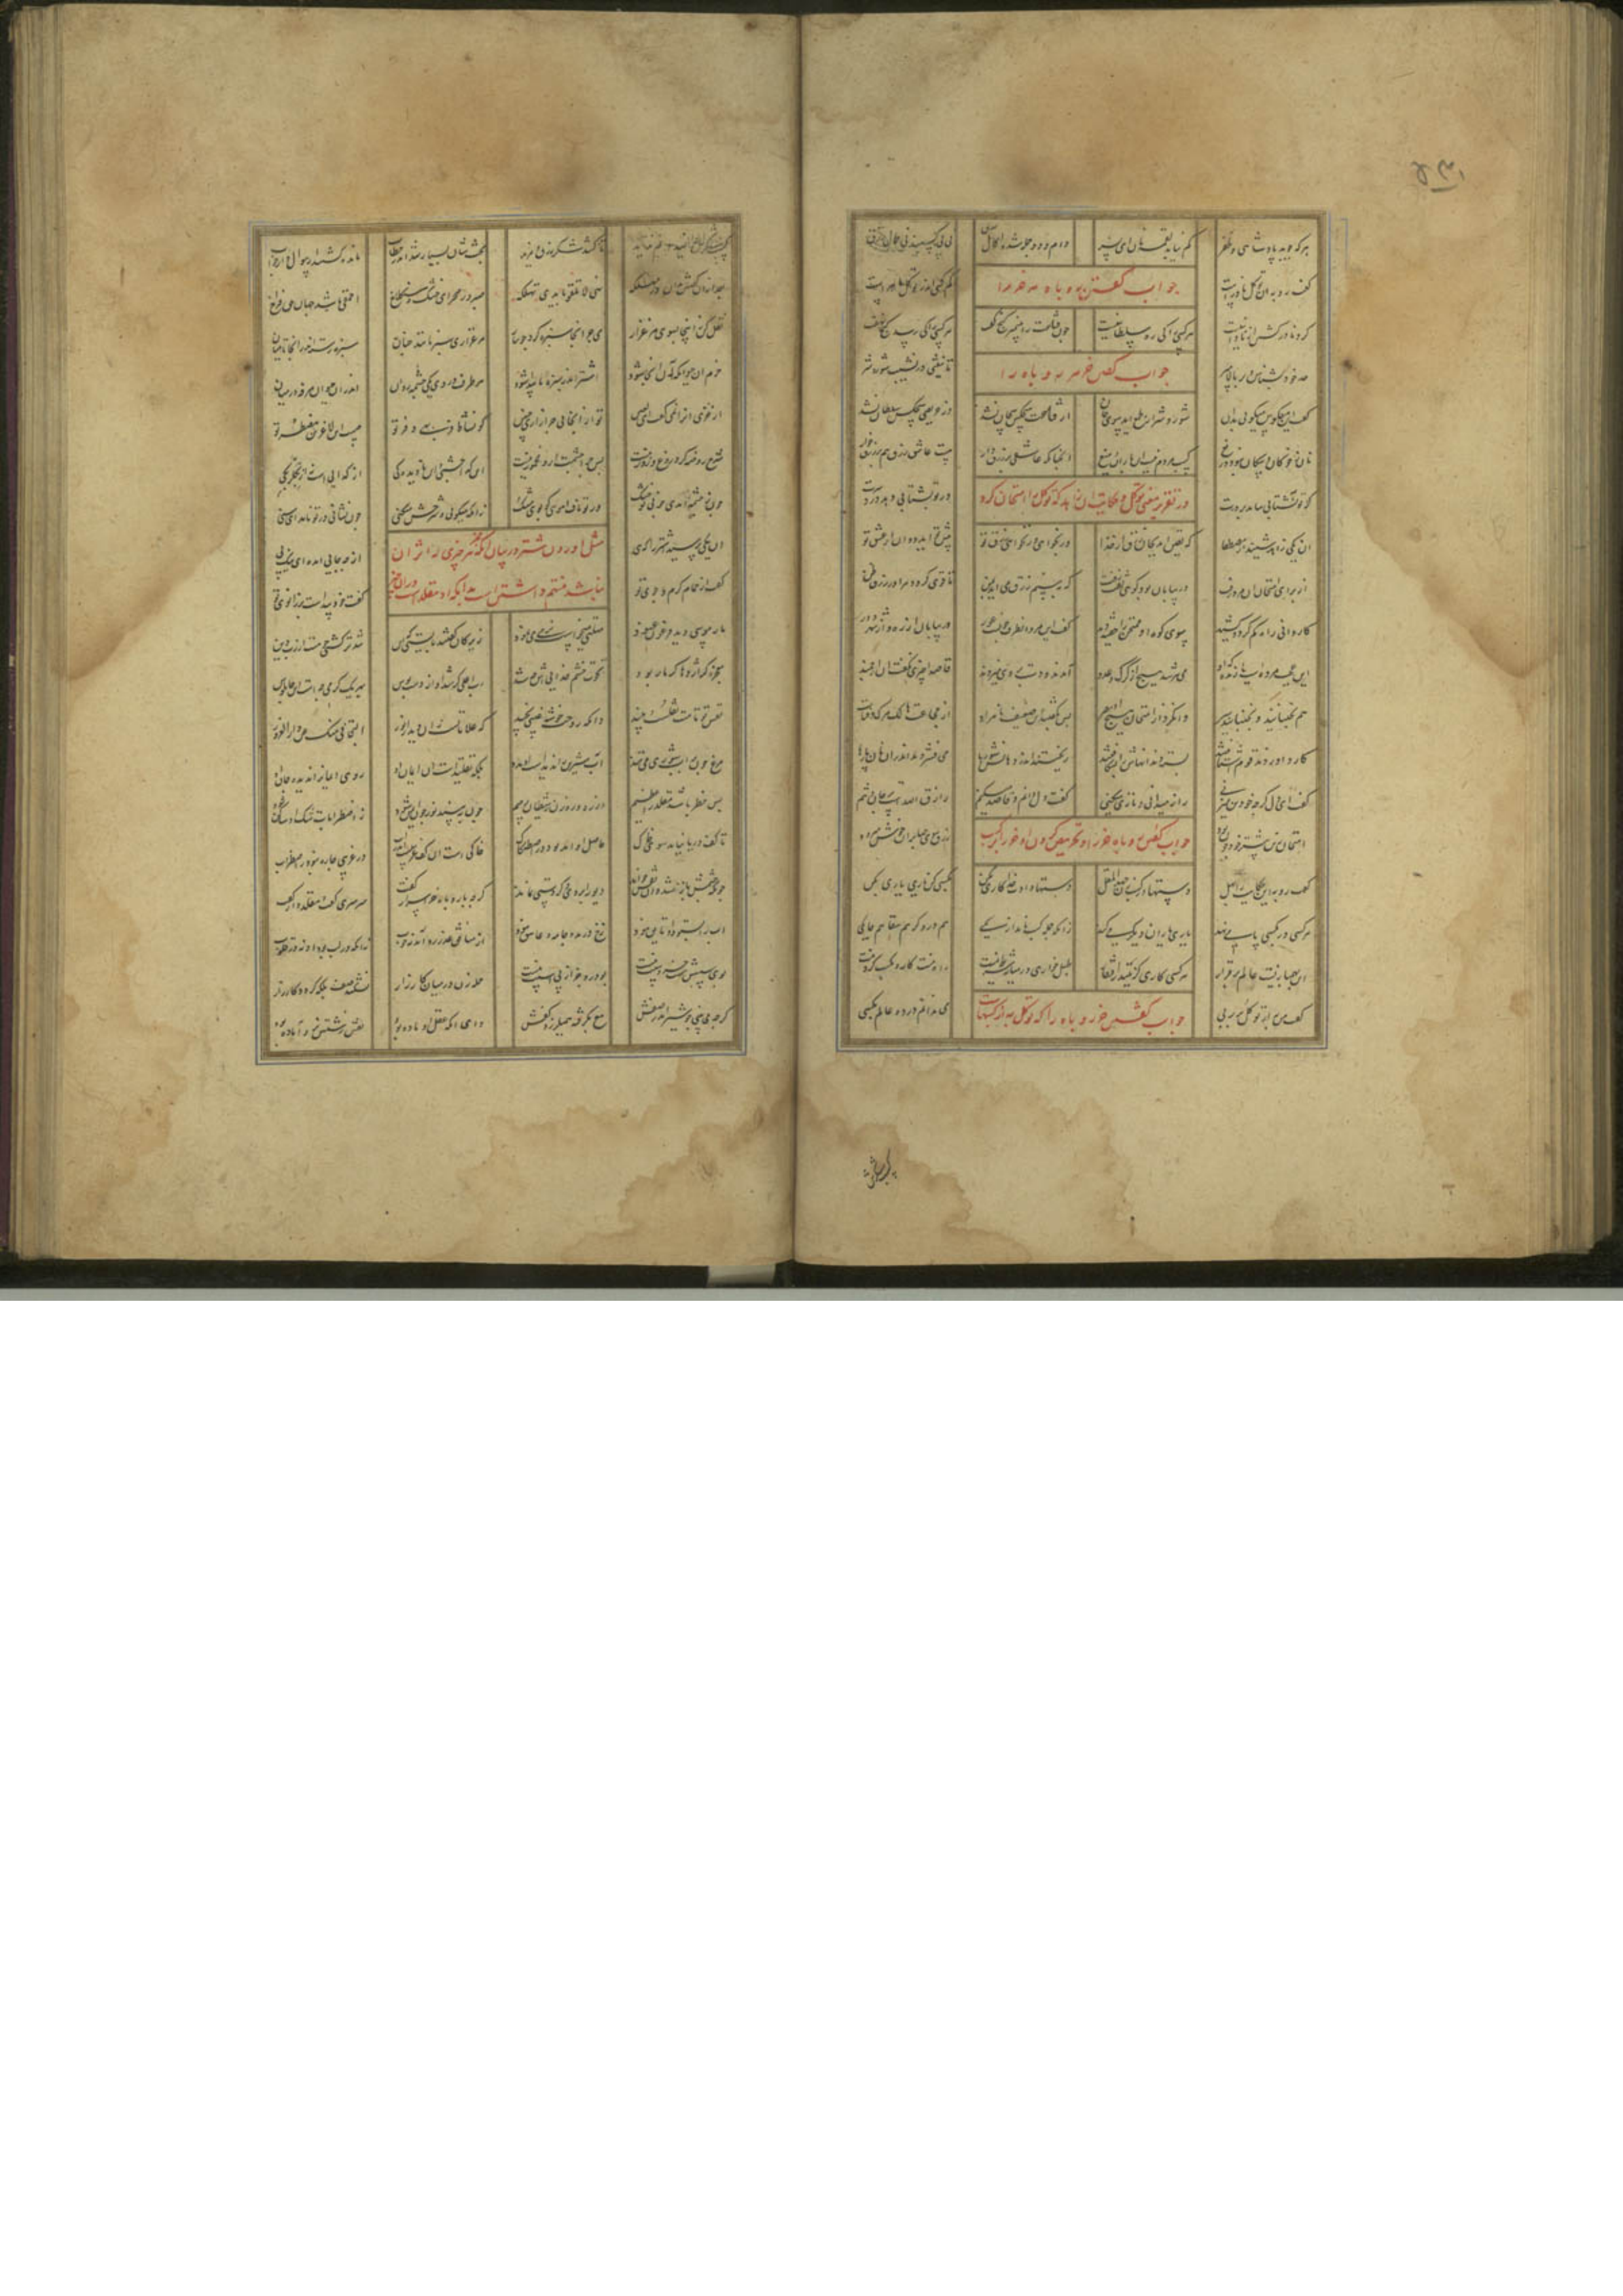 هرکه جوید پادشاهی و ظفر کم نیاید لقمه نان ای پسر دام و دد جمله شده اکال رزق نی پی کسبند نی حمال رزق
جواب گفتن روباه مر خر را
گفت روبه آن توکل نادرست کم کسی اندر توکل ماهرست
گرد نادر گشتن از نادانیست هر کسی را کی ره سلطانیست چون قناعت را پیمبر گنج گفت هر کسی را کی رسد گنج نهفت
جواب گفتن خر مر روباه را
حد خود بشناس و بر بالا مپر تا نیفتی در نشیب شور و شر
گفت این معکوس میگویی بدان شور و شر از طمع آید سوی جان از قناعت هیچکس بیجان نشد از حریصی هیچکس سلطان نشد
نان ز خوکان و سگان نبود دریغ کسب مردم نیست این باران و میغ آنچنانکه عاشقی بر رزق زار هست عاشق رزق هم بر رزق خوار
در تقریر معنی توکل و حکایت آن زاهد که توکل را امتحان کرد
گر تو نشتابی بیاید بر درت ور تو بشتابی دهد درد سرت
آن یکی زاهد شنید از مصطفا که یقین آید بجان رزق از خدا گر بخواهی ور نخواهی رزق تو پیش تو آید دوان از عشق تو
از برای امتحان آن مرد رفت در بیابان نزد کوهی خفت تفت که ببینم رزق می آید بمن تا قوی گردد مرا در رزق ظن
کاروانی راه گم کرد و کشید سوی کوه آن ممتحن را خفته دید گفت این مرد این طرف چونست عور در بیابان از ره و از شهر دور
ای عجب مرده است یا زنده که او می نترسد هیچ از گرگ و عدو آمدند و دست بر وی میزدند قاصدا چیزی نگفت آن ارجمند
هم نجنبید و نجنبانید سر وا نکرد از امتحان هم او بصر پس بگفتند این ضعیف بی مراد از مجاعت سکته اندر اوفتاد
کارد آوردند قوم اشتافتند بسته دندانهاش را بشکافتند ریختند اندر دهانش شوربا می فشردند اندرو نان پارها
گفت ای دل گرچه خود تن میزنی راز میدانی و نازی میکنی گفت دل دانم و قاصد میکنم رازق الله است بر جان و تنم
جواب گفتن روباه خر را و تحریض کردن او خر را بر کسب
امتحان زین بیشتر خود چون بود رزق سوی صابران خوش میرود
گفت روبه این حکایت را بهل دستها بر کسب زن جهد المقل دست دادستت خدا کاری بکن مکسبی کن یاری یاری بکن
هر کسی در مکسبی پا می نهد یاری یاران دیگر میکند زانکه جمله کسب ناید از یکی هم دروگر هم سقا هم حایکی
این بهنبازیست عالم برقرار هر کسی کاری گزیند ز افتقار طبل خواری در میانه شرط نیست راه سنت کار و مکسب کردنیست
جواب گفتن خر روباه را که توکل بهترین کسبهاست
گفت من به از توکل بر ربی می ندانم در دو عالم مکسبی
کسب شکرش را نمیدانم ندید تا کشد شکر خدا رزق و مزید بحثشان بسیار شد اندر خطاب مانده گشتند از سوال و از جواب
بعد از آن گفتش بدان در مهلکه نهی لا تلقوا بایدی تهلکه صبر در صحرای خشک و سنگلاخ احمقی باشد جهان حق فراخ
نقل کن زینجا بسوی مرغزار می چر آنجا سبزه گرد جویبار مرغزاری سبز مانند جنان سبزه رسته اندر آنجا تا میان
خرم آن حیوان که او آنجا شود اشتر اندر سبزه ناپیدا شود هر طرف در وی یکی چشمه روان اندرو حیوان مرفه در امان
از خری او را نمی گفت ای لعین تو از آنجایی چرا زاری چنین کو نشاط و فربهی و فر تو چیست این لاغر تن مضطر تو
شرح روضه گر دروغ و زور نیست پس چرا چشمت ازو مخمور نیست این گدا چشمی و این نادیدگی از گدایی تست نه از بگلربگی
چون ز چشمه آمدی چونی تو خشک ور تو ناف آهویی کو بوی مشک زانکه میگویی و شرحش میکنی چون نشانی در تو نامد ای سنی
مثل آوردن شتر در بیان آنکه در مخبری
آن یکی پرسید اشتر را که هی از کجا می آیی ای اقبال پی
گفت از حمام گرم کوی تو گفت خود پیداست در زانوی تو
مار موسی دید فرعون عنود مهلتی میخواست نرمی می نمود زیرکان گفتند بایستی که این تندتر گشتی چو هست او رب دین
معجزه گر اژدها گر مار بد نخوت و خشم خدایی اش چه شد رب اعلی گر ویست اندر جلوس بهر یک کرمی چیست این چاپلوس
نفس تو تا مست نقلست و نبید دانکه روحت خوشه غیبی ندید که علاماتست زان دیدار نور التجافی منک عن دار الغرور
مرغ چون بر آب شوری می تند آب شیرین را ندیدست او مدد بلکه تقلیدست آن ایمان او روی ایمان را ندیده جان او
پس خطر باشد مقلد را عظیم از ره و رهزن ز شیطان رجیم چون ببیند نور حق ایمن شود ز اضطرابات شک او ساکن شود
تا کف دریا نیاید سوی خاک کاصل او آمد بود در اصطکاک خاکی است آن کف غریبست اندر آب در غریبی چاره نبود ز اضطراب
چونکه چشمش باز شد و آن نقش خواند دیو را بر وی دگر دستی نماند گرچه با روباه خر اسرار گفت سرسری گفت و مقلدوار گفت
آب را بستود و او تایق نبود رخ درید و جامه او عاشق نبود از منافق عذر رد آمد نه خوب زانکه در لب بود آن نه در قلوب
بوی سیبش هست جزو سیب نیست بو درو جز از پی آسیب نیست حمله زن در میان کارزار نشکند صف بلکه گردد کار زار
گرچه می بینی چو شیر اندر صفش تیغ بگرفته همی لرزد کفش وای آنکه عقل او ماده بود نفس زشتش نر و آماده بود